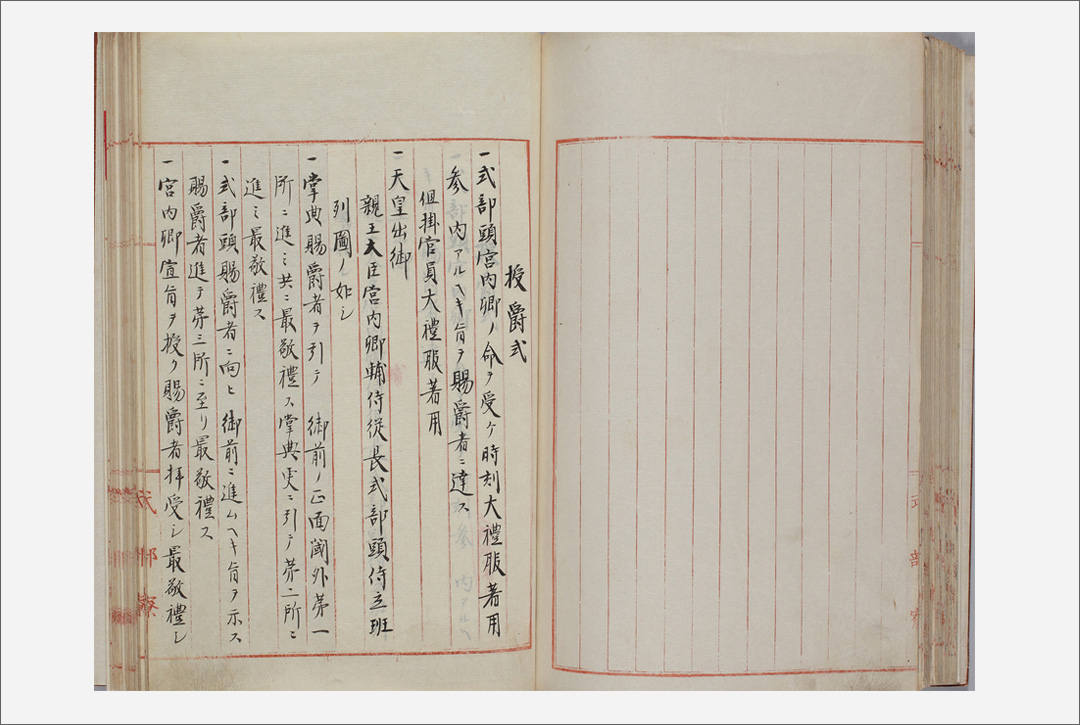 授爵式
一式部頭宮内卿ノ命ヲ受ケ時刻大禮服著用
参内アルヘキ旨ヲ賜爵者ニ達ス
但掛官員大禮服著用
一天皇出御
親王大臣宮内卿輔侍従長式部頭侍立班
列圖ノ如シ
一掌典賜爵者ヲ引テ 御前ノ正面閾外苐一
所ニ進ミ共ニ最敬禮ス掌典更ニ引テ苐二所ニ
進ミ最敬禮ス
一式部頭賜爵者ニ向ヒ 御前ニ進ムヘキ旨ヲ示ス
賜爵者進テ苐三所ニ至リ最敬禮ス
一宮内卿宣旨ヲ授ク賜爵者拝受シ最敬禮シ
式部寮